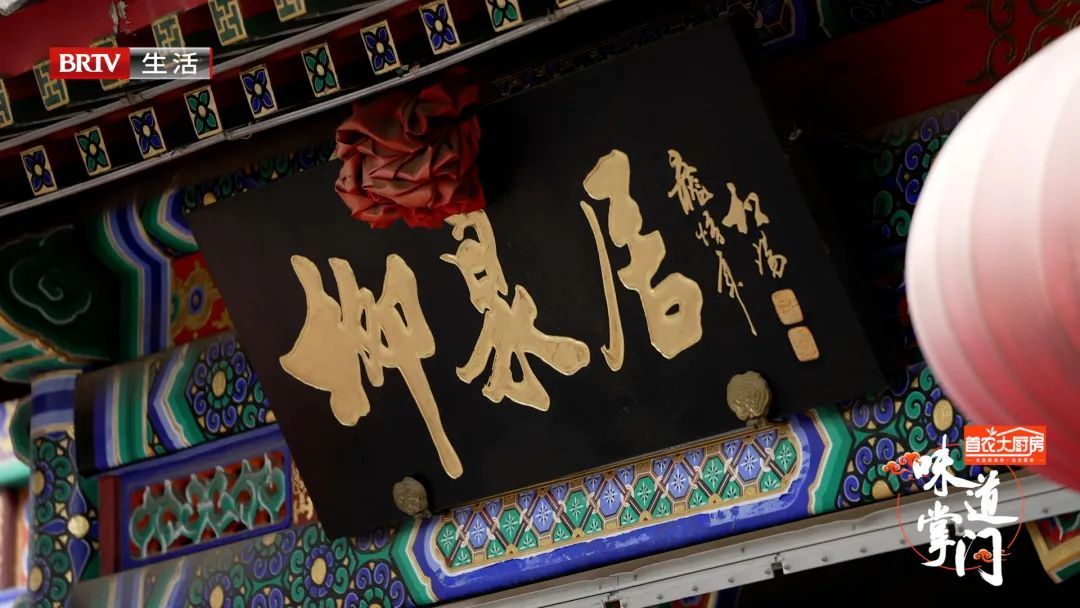 BRTV 生活
柳泉居
首农大厨房
味道掌门